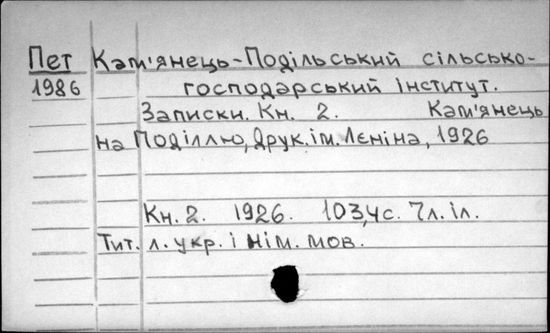 Пет Кам'янець-Подільський сільсько-
1986 господарський інститут.
Записки. Кн. 2. Кам'янець
на Поділлю, Друк. ім. Лєніна, 1926
Кн. 2. 1926. 103,4 с. 7 л. іл.
Тит. л. укр. і нім. мов.